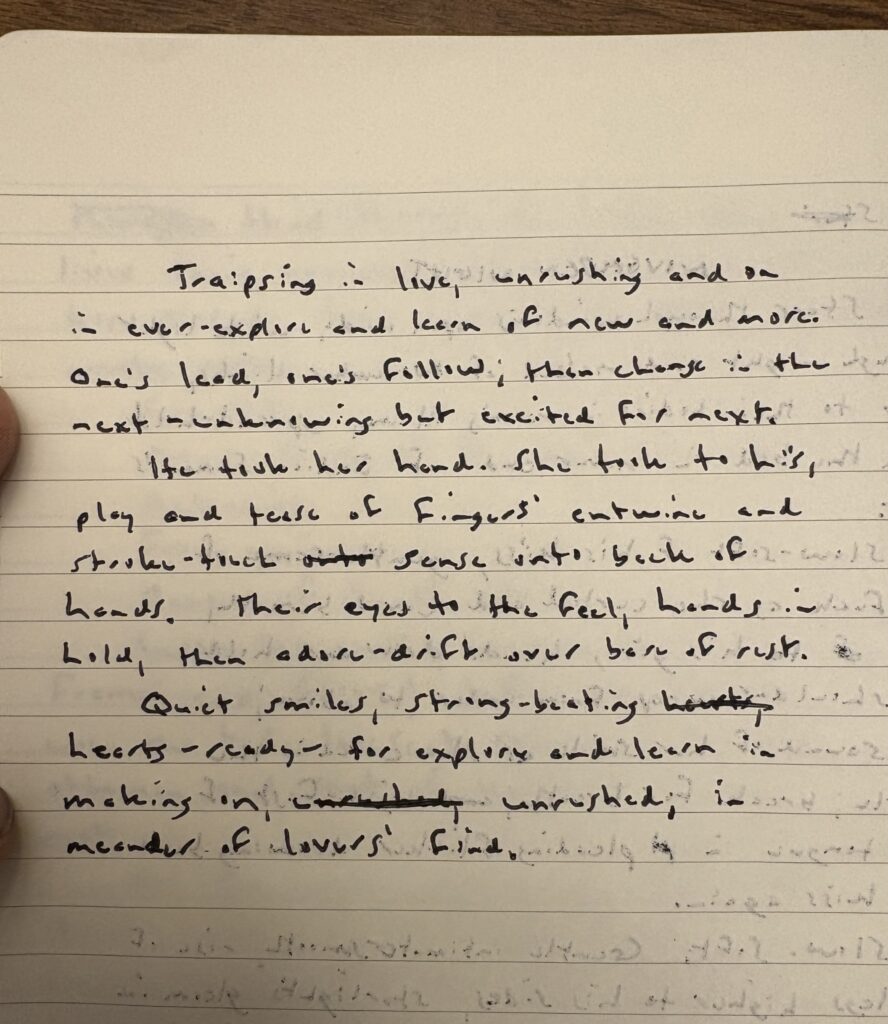 Traipsing in love, unrushing and on
in ever-explore and learn of new and more.
One's lead, one's follow; then change in the
next - unknowing but excited for next.
He took her hand. She took to his,
play and tease of fingers' entwine and
stroke-touch onto sense onto back of
hands. Their eyes to the feel, hands in
hold, then adore-drift over bare of rest.
Quiet smiles, strong-beating hearts,
hearts -ready- for explore and learn in
making on, unrushed, unrushed, in
meander of lovers' find.